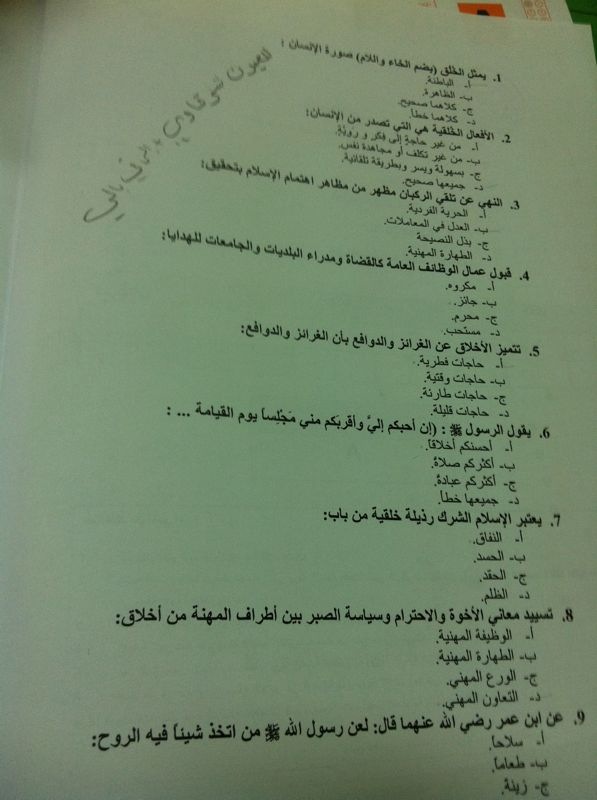 1. يمثل الخُلق (بضم الخاء واللام) صورة الإنسان :
أ- الباطنة.
ب- الظاهرة.
ج- كلاهما صحيح.
د- كلاهما خطأ.
2. الأفعال الخُلقية هي التي تصدر من الإنسان:
أ- من غير حاجةٍ إلى فِكر و رَويّة.
ب- من غير تكلف أو مجاهدة نفس.
ج- بسهولة ويسر وبطريقة تلقائية.
د- جميعها صحيح.
3. النهي عن تلقي الركبان مظهر من مظاهر اهتمام الإسلام بتحقيق:
أ- الحرية الفردية.
ب- العدل في المعاملات.
ج- بذل النصيحة
د- الطهارة المهنية.
4. قبول عمال الوظائف العامة كالقضاة ومدراء البلديات والجامعات للهدايا:
أ- مكروه.
ب- جائز.
ج- محرم.
د- مستحب.
5. تتميز الأخلاق عن الغرائز والدوافع بأن الغرائز والدوافع:
أ- حاجات فطرية.
ب- حاجات وقتية.
ج- حاجات طارئة.
د- حاجات قليلة.
6. يقول الرسول ﷺ : (إن أحبكم إليَّ وأقربَكم مني مَجْلِساً يوم القيامة ... :
أ- أحسنكم أخلاقاً.
ب- أكثركم صلاةً.
ج- أكثركم عبادةً.
د- جميعها خطأ.
7. يعتبر الإسلام الشرك رذيلة خلقية من باب:
أ- النفاق.
ب- الحسد.
ج- الحقد.
د- الظلم.
8. تسييد معاني الأخوة والاحترام وسياسة الصبر بين أطراف المهنة من أخلاق:
أ- الوظيفة المهنية.
ب- الطهارة المهنية.
ج- الورع المهني.
د- التعاون المهني.
9. عن ابن عمر رضي الله عنهما قال: لعن رسول الله ﷺ من اتخذ شيئاً فيه الروح:
أ- سلاحاً.
ب- طعاماً.
ج- زينة.